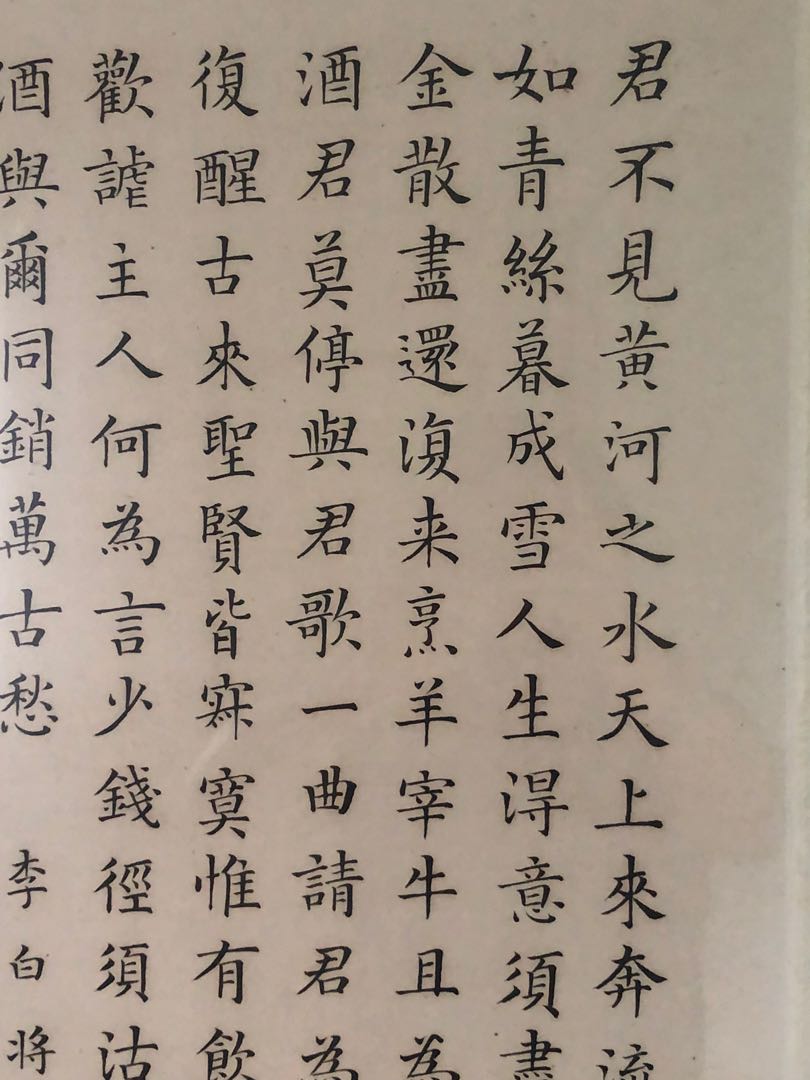 君不見黄河之水天上來奔流
如青絲暮成雪人生得意須盡
金散盡還復来烹羊宰牛且為
酒君莫停與君歌一曲請君為
復醒古來聖賢皆寂寞惟有飲
歡謔主人何為言少錢徑須沽
酒與爾同銷萬古愁 李白将